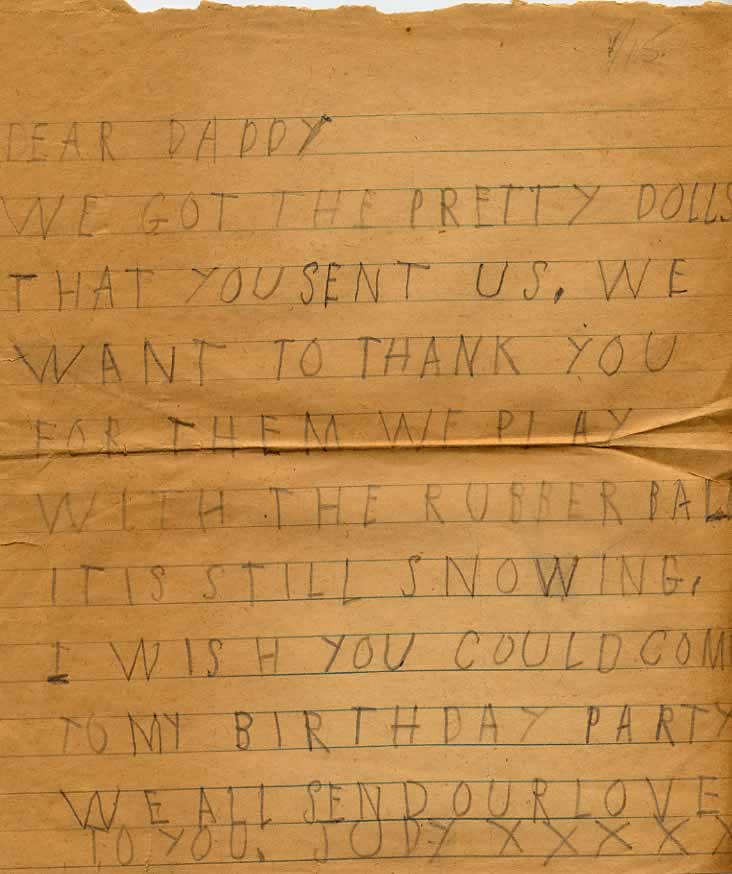 1/15
DEAR DADDY
WE GOT THE PRETTY DOLLS
THAT YOU SENT US. WE
WANT TO THANK YOU
FOR THEM WE PLAY
WITH THE RUBBER BALL
IT IS STILL SNOWING.
I WISH YOU COULD COM
TO MY BIRTHDAY PARTY
WE ALL SEND OUR LOVE
TO YOU. JUDY XXXXX